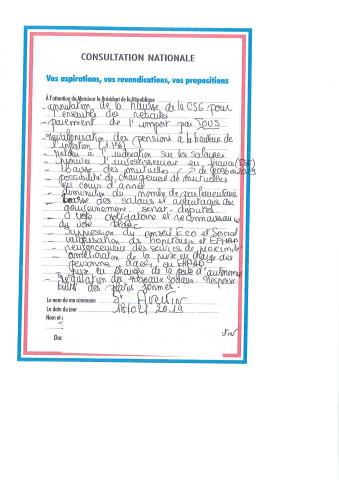 CONSULTATION NATIONALE
Vos aspirations, vos revendications, vos propositions
À l'attention de Monsieur le Président de la République
- annulation de la hausse de la CSG pour
l'ensemble des retraités
- paiement de l'impot par TOUS
- revalorisation des pensions à la hauteur de
l'inflation
sur les salaires
l'investissement en
- baisse des mutuelles
possibilité de changement de mutuelles
en cours d'année
- diminution du nombre de parlementaires
baisse des salaires et avantages des
gouvernement, senat - deputés
- vote obligatoire et reconnaissance
du vote blanc
- suppression du conseil Eco et Social
- valorisation des hopitaux et EHPAD
renforcement des services de proximité
- amélioration de la prise en charge des
personnes agées en EHPAD
prise en charge de la perte d'autonomie
- Régulation des réseaux sociaux - respons
bilité des plates formes -
Le nom de ma commune St Avertin
La date du jour 18/02/2019
Nom et
Doc